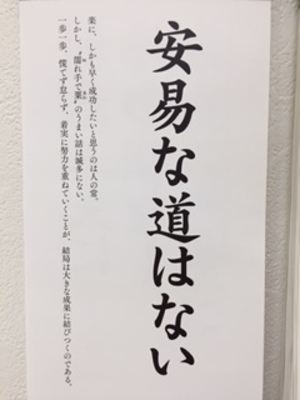 安易な道はない
楽に、しかも早く成功したいと思うのは人の常。
しかし、〝濡れ手で粟〟のうまい話は滅多にない。
一歩一歩、慌てず怠らず、着実に努力を重ねていくことが、結局は大きな成果に結びつくのである。